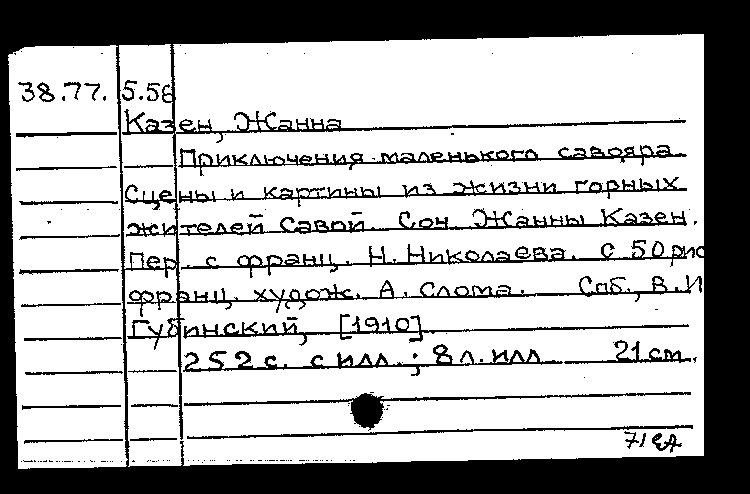 38.77. 5.56
Казен, Жанна
Приключения маленького савояра.
Сцены и картины из жизни горных
жителей Савой. Соч. Жанны Казен.
Пер. с франц. Н. Николаева. С 50 рис
франц. худож. А. Слома. Спб., В.И
Губинский, [1910].
252 с. с илл.; 8 л. илл. 21 см.